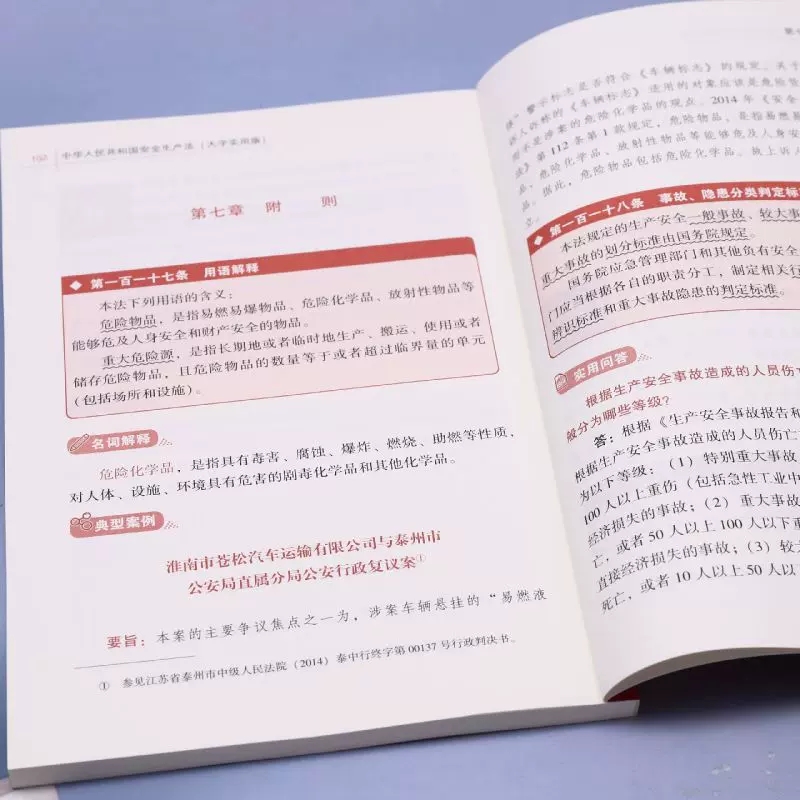 中华人民共和国安全生产法（大字实用版）
第七章 附 则
◆ 第一百一十七条 用语解释
本法下列用语的含义：
危险物品，是指易燃易爆物品、危险化学品、放射性物品等
能够危及人身安全和财产安全的物品。
重大危险源，是指长期地或者临时地生产、搬运、使用或者
储存危险物品，且危险物品的数量等于或者超过临界量的单元
（包括场所和设施）。
名词解释
危险化学品，是指具有毒害、腐蚀、爆炸、燃烧、助燃等性质，
对人体、设施、环境具有危害的剧毒化学品和其他化学品。
典型案例
淮南市苍松汽车运输有限公司与泰州市
公安局直属分局公安行政复议案①
要旨：本案的主要争议焦点之一为，涉案车辆悬挂的“易燃液
① 参见江苏省泰州市中级人民法院（2014）泰中行终字第 00137 号行政判决书。
体”警示标志是否符合《车辆标志》的规定。关于
诉人诉称的《车辆标志》适用的对象应该是危险货
而不是涉案的危险化学品的观点。2014 年《安全
法》第 112 条第 1 款规定，危险物品，是指易燃易
品、危险化学品、放射性物品等能够危及人身安
品。据此，危险物品包括危险化学品。故上诉人
立。
◆ 第一百一十八条 事故、隐患分类判定标
本法规定的生产安全一般事故、较大事
重大事故的划分标准由国务院规定。
国务院应急管理部门和其他负有安全
门应当根据各自的职责分工，制定相关行
辨识标准和重大事故隐患的判定标准。
实用问答
根据生产安全事故造成的人员伤亡
般分为哪些等级？
答：根据《生产安全事故报告和
根据生产安全事故造成的人员伤亡
为以下等级：（1）特别重大事故，
100 人以上重伤（包括急性工业中
经济损失的事故；（2）重大事故
亡，或者 50 人以上 100 人以下重
直接经济损失的事故；（3）较大
死亡，或者 10 人以上 50 人以